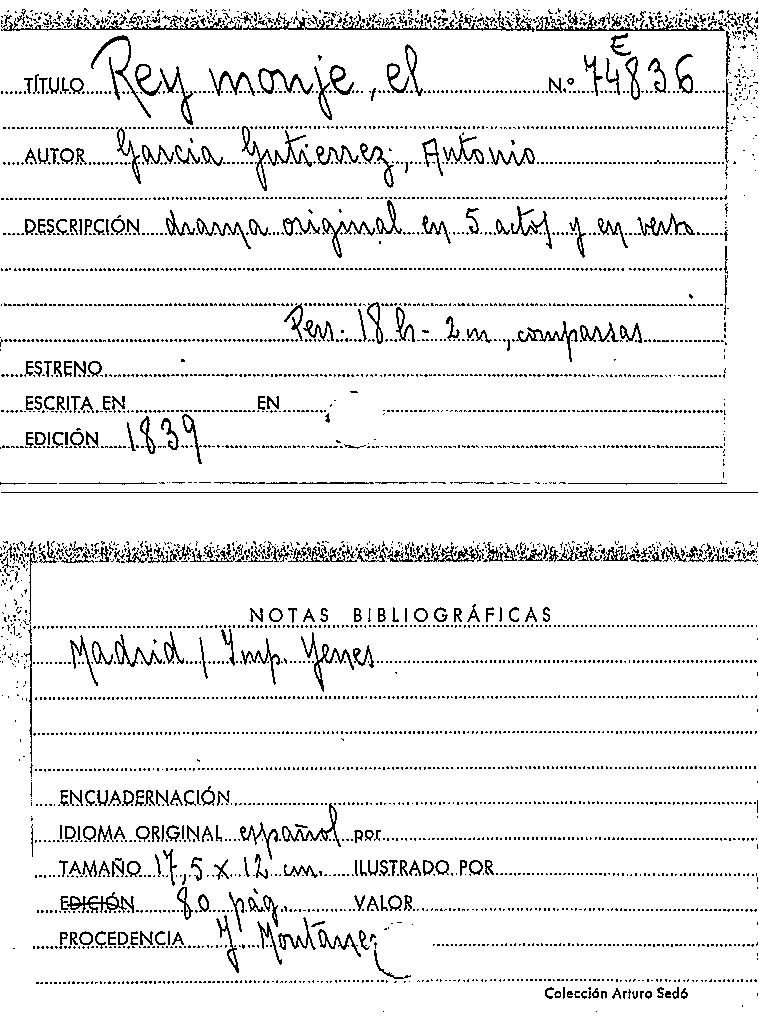 E
TÍTULO Rey monje, el N.º 74836
AUTOR García Gutierrez, Antonio
DESCRIPCIÓN drama original en 5 actos y en verso
Pers. 18 h - 2 m, comparsas
ESTRENO
ESCRITA EN EN
EDICIÓN 1839
NOTAS BIBLIOGRÁFICAS
Madrid / Imp. Yenes
ENCUADERNACIÓN
IDIOMA ORIGINAL español por
TAMAÑO 17,5 x 12 cm. ILUSTRADO POR
EDICIÓN 80 pág. VALOR
PROCEDENCIA J. Montaner
Colección Arturo Sedó